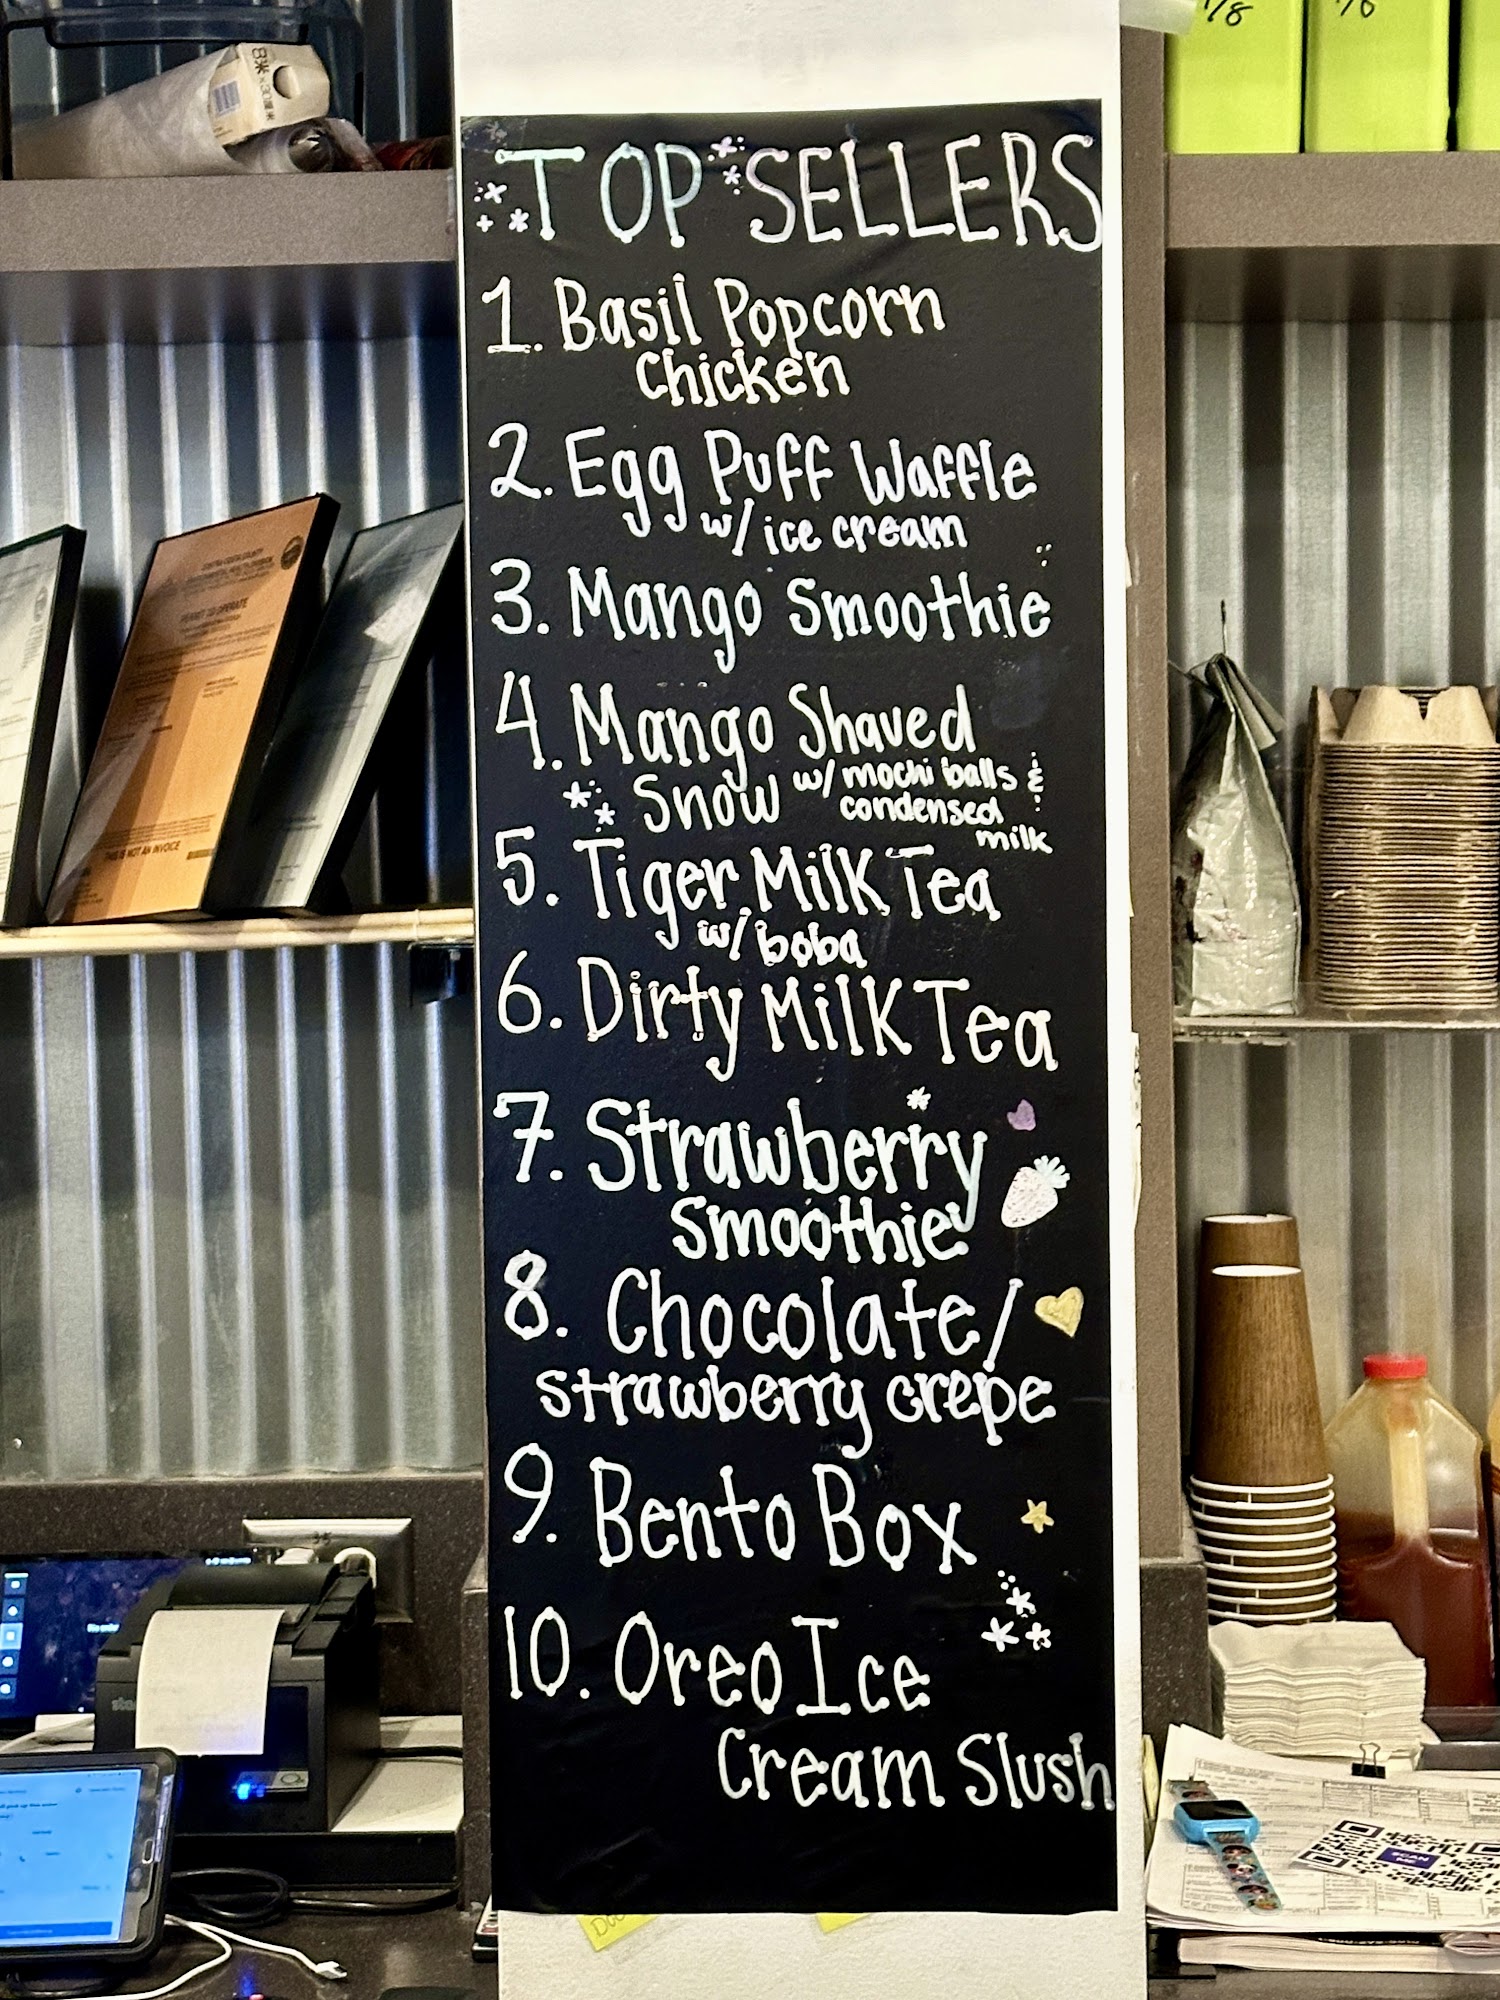 1/8
TOP SELLERS
1. Basil Popcorn
Chicken
2. Egg Puff Waffle
w/ ice cream
3. Mango Smoothie
4. Mango Shaved
Snow w/ mochi balls &
condensed
milk
5. Tiger Milk Tea
w/ boba
6. Dirty Milk Tea
7. Strawberry
Smoothie
8. Chocolate/
strawberry crepe
9. Bento Box
10. Oreo Ice
Cream Slush
PERMIT TO OPERATE
THIS IS NOT AN INVOICE
SCAN
ME